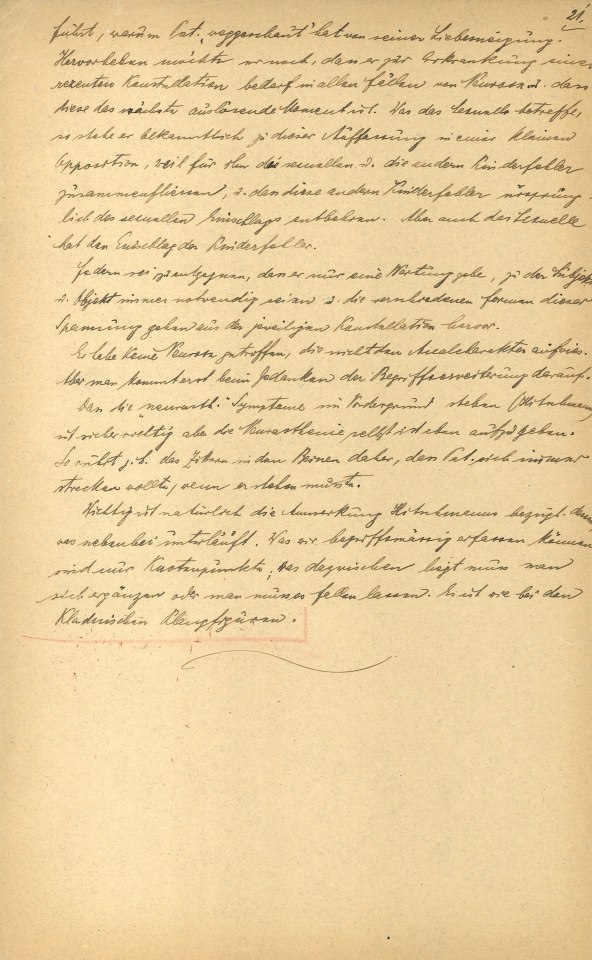 21.
führt, warum Pat. „weggeschaut" hat von seiner Liebesneigung.
Hervorheben möchte er noch, dass er zur Erkrankung einer
rezenten Konstellation bedarf in allen Fällen von Neurose u. dass
diese das nächste auslösende Moment ist. Was das Sexuelle betreffe,
so stehe er bekanntlich zu dieser Auffassung in einer kleinen
Opposition, weil für ihn die sexuellen u. die andern Kinderfehler
zusammenfliessen, u. dass diese andern Kinderfehler ursprüng-
lich des sexuellen Einschlags entbehren. Aber auch das Sexuelle
hat den Einschlag der Kinderfehler.
Federn sei zu entgegnen, dass er nur eine Wertung gebe, zu der Subjekt
u. Objekt immer notwendig seien u. die verschiedenen Formen dieser
Spannung gehen aus der jeweiligen Konstellation hervor.
Er habe keine Neurose getroffen, die nicht den Analcharakter aufwies.
Aber man kommt erst beim Gedanken der Begriffserweiterung darauf.
Dass die „neurasth." Symptome im Vordergrund stehen (Hitschmann)
ist sicher richtig aber die Neurasthenie selbst ist eben aufzugeben.
So rührt z.B. das Zittern in den Beinen daher, dass Pat. sich immer
strecken wollte, wenn er stehen musste.
Wichtig ist natürlich die Anmerkung Hitschmanns bezügl. dessen
was nebenbei unterläuft. Was wir begriffsmässig erfassen können
sind nur Knotenpunkte; was dazwischen liegt muss man
sich ergänzen oder man muss es fallen lassen. Es ist wie bei den
Kladnischen Klangfiguren.